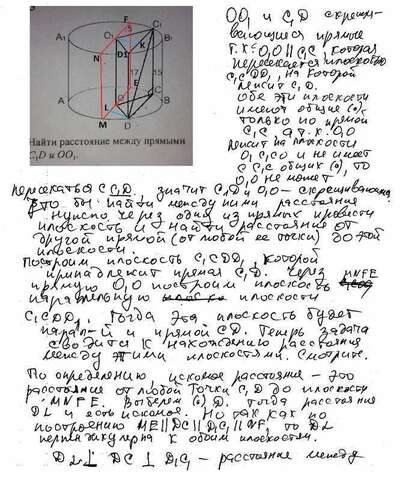 F
C₁
A₁
O₁
K
B₁
D1
N
17
15
E
O
C
A
B
L
M
D
Найти расстояние между прямыми
C₁D и OO₁.
OO₁ и C₁D скрещи-
вающиеся прямые
т.к. O₁O || C₁C, которая
пересекается плоскостью
C₁CDD₁, на которой
лежит C₁D.
Обе эти плоскости
имеют общие (•)
только по прямой
C₁C а т.к. O₁O
лежит на плоскости
O₁C₁CO и не имеет
с C₁C общих (•), то
O₁O не может
пересекаться с C₁D, значит C₁D и O₁O - скрещивающиеся
чтобы найти между ними расстояние
нужно через одну из прямых провести
плоскость и найти расстояние от
другой прямой (от любой её точки) до этой
плоскости.
Построим плоскость C₁CDD₁, которой
принадлежит прямая C₁D. Через
прямую O₁O построим плоскость MNFE
параллельную плоскости
C₁CDD₁. Тогда эта плоскость будет
парал-й и прямой C₁D. Теперь задача
сводится к нахождению расстояния
между этими плоскостями. Смотрите.
По определению искомое расстояние - это
расстояние от любой точки C₁D до плоскости
MNFE. Выберем (•) D. Тогда расстояние
DL и есть искомое. Но так как по
построению ME || DC || D₁C₁ || NF, то DL
перпендикулярна к обоим плоскостям.
DL ⊥ DC ⊥ D₁C₁ - расстояние между